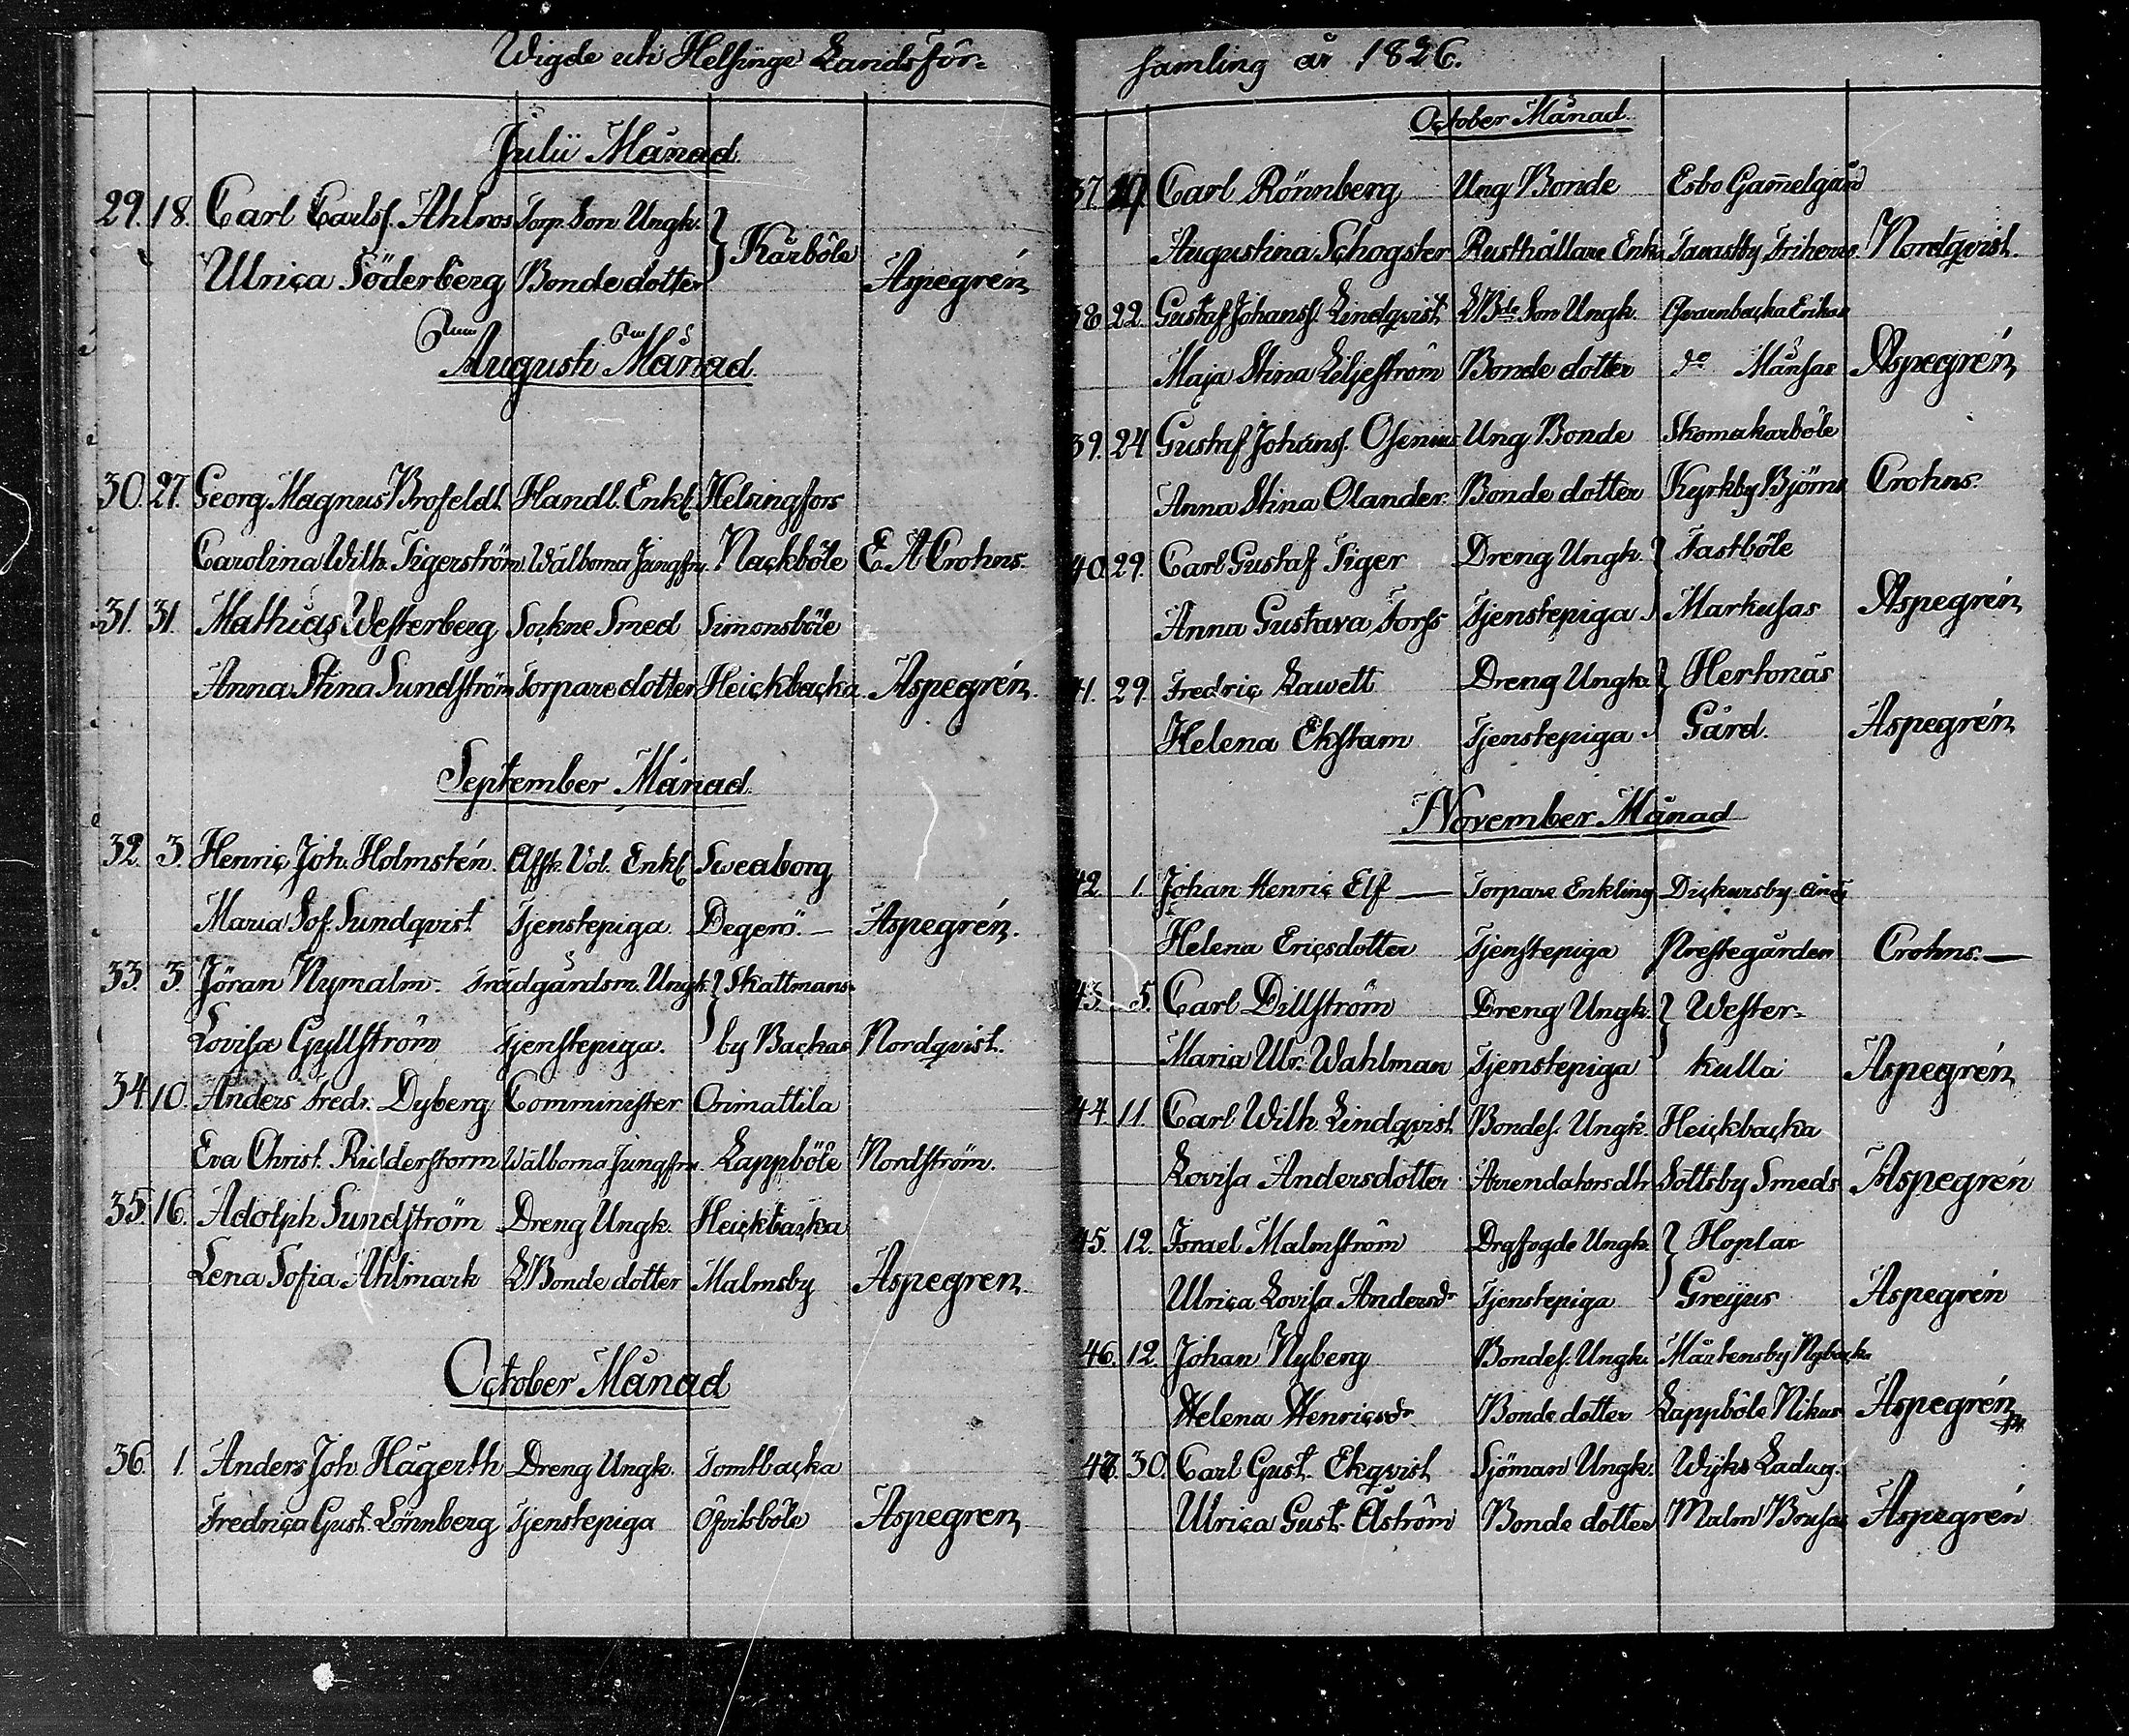 Wigde uti Helsinge Landsför=
Julii Månad
29. 18. Carl Carlss. Ahlroos Torp. Son Ungk. } Kårböle
Ulrica Söderberg Bondedotter Aspegrén
Augusti Månad
30. 27. Georg Magnus Brofeldt. Handl. Enkl. Helsingfors
Carolina Wilh. Tigerström Wälborna Jungfru Nackböle E. A. Crohns.
31. 31. Mathias Westerberg Sockne Smed Simonsböle
Anna Stina Sundström Torparedotter Heickbacka Aspegrén.
September Månad
32. 3. Henric Joh. Holmstén. Enkl. Sweaborg
Maria Sof. Sundqvist Tjenstepiga Degerö. — Aspegrén.
33. 3. Jöran Nymalm. Trädgårdsm. Ungk. } Skattmans=
Lovisa Gyllström Tjenstepiga. by Backas Nordqvist.
34. 10. Anders Fredr. Dyberg Comminister Orimattila
Eva Christ. Ridderstorm Wälborna Jungfru Lappböle Nordström.
35. 16. Adolph Sundström Dreng Ungk. Heickbacka
Lena Sofia Ahlmark LBonde dotter Malmsby Aspegren.
October Månad
36. 1. Anders Joh. Hägerth Dreng Ungk. Tomtbacka
Fredrica Gust. Lönnberg Tjenstepiga Öfvitsböle Aspegren
samling år 1826.
October Månad.
37. 19. Carl Rönnberg Ung Bonde Esbo Gam̄elgård
Augustina Schogster Rusthållare Enk. Tavastby Nordqvist.
38 22. Gustaf Johanss. Lindqvist LBde Son Ungk. Qvarnbacka Erikas
Maja Stina Liljeström Bonde dotter do Månsas Aspegrén
39. 24 Gustaf Johanss. Osenius Ung Bonde Skomakarböle
Anna Stina Olander. Bonde dotter Kyrkby Björns Crohns.
40. 29. Carl Gustaf Tiger Dreng Ungk. } Tastböle
Anna Gustava Forss Tjenstepiga Markusas Aspegrén
41. 29. Fredric Lawett Dreng Ungk. } Hertonäs
Helena Ekstam Tjenstepiga Gård. Aspegrén
November Månad
42 1. Johan Henric Elf — Torpare Enkling Dickursby
Helena Ericsdotter Tjenstepiga Prestegården Crohns. —
43. 5. Carl Dillström Dreng Ungk. } Wester=
Maria Ulr. Wahlman Tjenstepiga kulla Aspegrén
44 11. Carl Wilh. Lindqvist. Bondes. Ungk. Heickbacka
Lovisa Andersdotter Arrendators dtr Sottsby Smeds Aspegrén
45. 12. Israel Malmström Drgfogde Ungk. } Hoplax
Ulrica Lovisa Andersdr Tjenstepiga Greijus Aspegrén
46. 12. Johan Nyberg Bondes. Ungk. Mårtensby Nyback.
Helena Henricsdr Bonde dotter Lappböle Nikus Aspegrén
47. 30. Carl Gust. Ekqvist Sjöman Ungk. Wijks Ladug.
Ulrica Gust. Åström Bonde dotter Malm Brusas Aspegrén